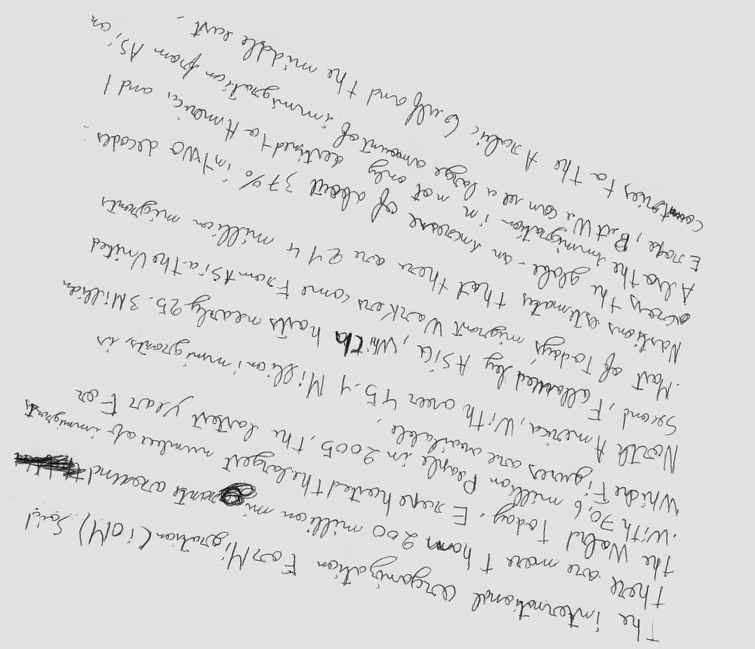 The international organization For Migration (ioM) Said
There are more than 200 million migrants around
the World Today. Erope hosted the largest number of immigrants
.With 70,6 million People in 2005, the latest year For
Whidte Figures are available.
North America, With over 45.1 Million immigrants is
Second, Followed by ASia, Which hosts nearly 25.3 Million
.Most of Todays migrant Workers come From ASia. The United
Nastions estimates that there are 214 million migrants
across the globe - an increase of about 37% in two decades.
Also the immigration is not only destined to America, and
Erope, But We can see a large amount of immigration from ASian
contries to the Arabic Gulf and the middle east.